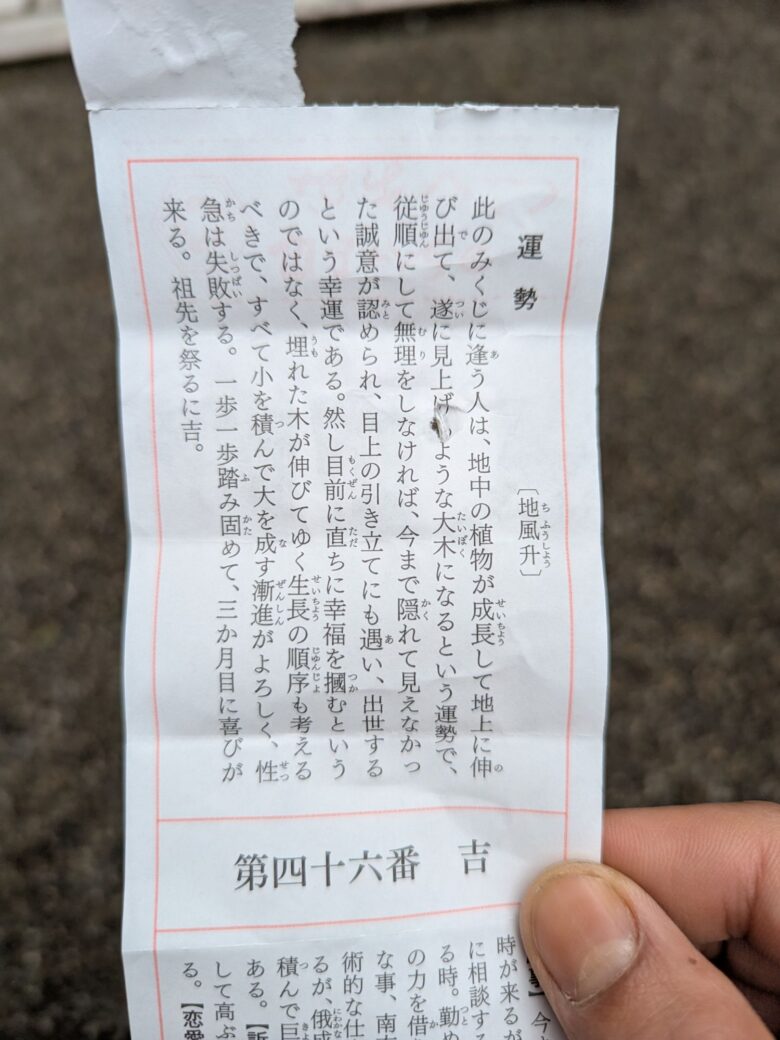 運勢
〔地風升〕
此のみくじに逢う人は、地中の植物が成長して地上に伸
び出て、遂に見上げ ような大木になるという運勢で、
従順にして無理をしなければ、今まで隠れて見えなかっ
た誠意が認められ、目上の引き立てにも遇い、出世する
という幸運である。然し目前に直ちに幸福を摑むという
のではなく、埋れた木が伸びてゆく生長の順序も考える
べきで、すべて小を積んで大を成す漸進がよろしく、性
急は失敗する。一歩一歩踏み固めて、三か月目に喜びが
来る。祖先を祭るに吉。
第四十六番 吉
事】今
時が来るが
に相談する
る時。勤め
の力を借
な事、南
術的な仕
るが、俄成
積んで巨
ある。【訴
して高ぶ
る。【恋愛